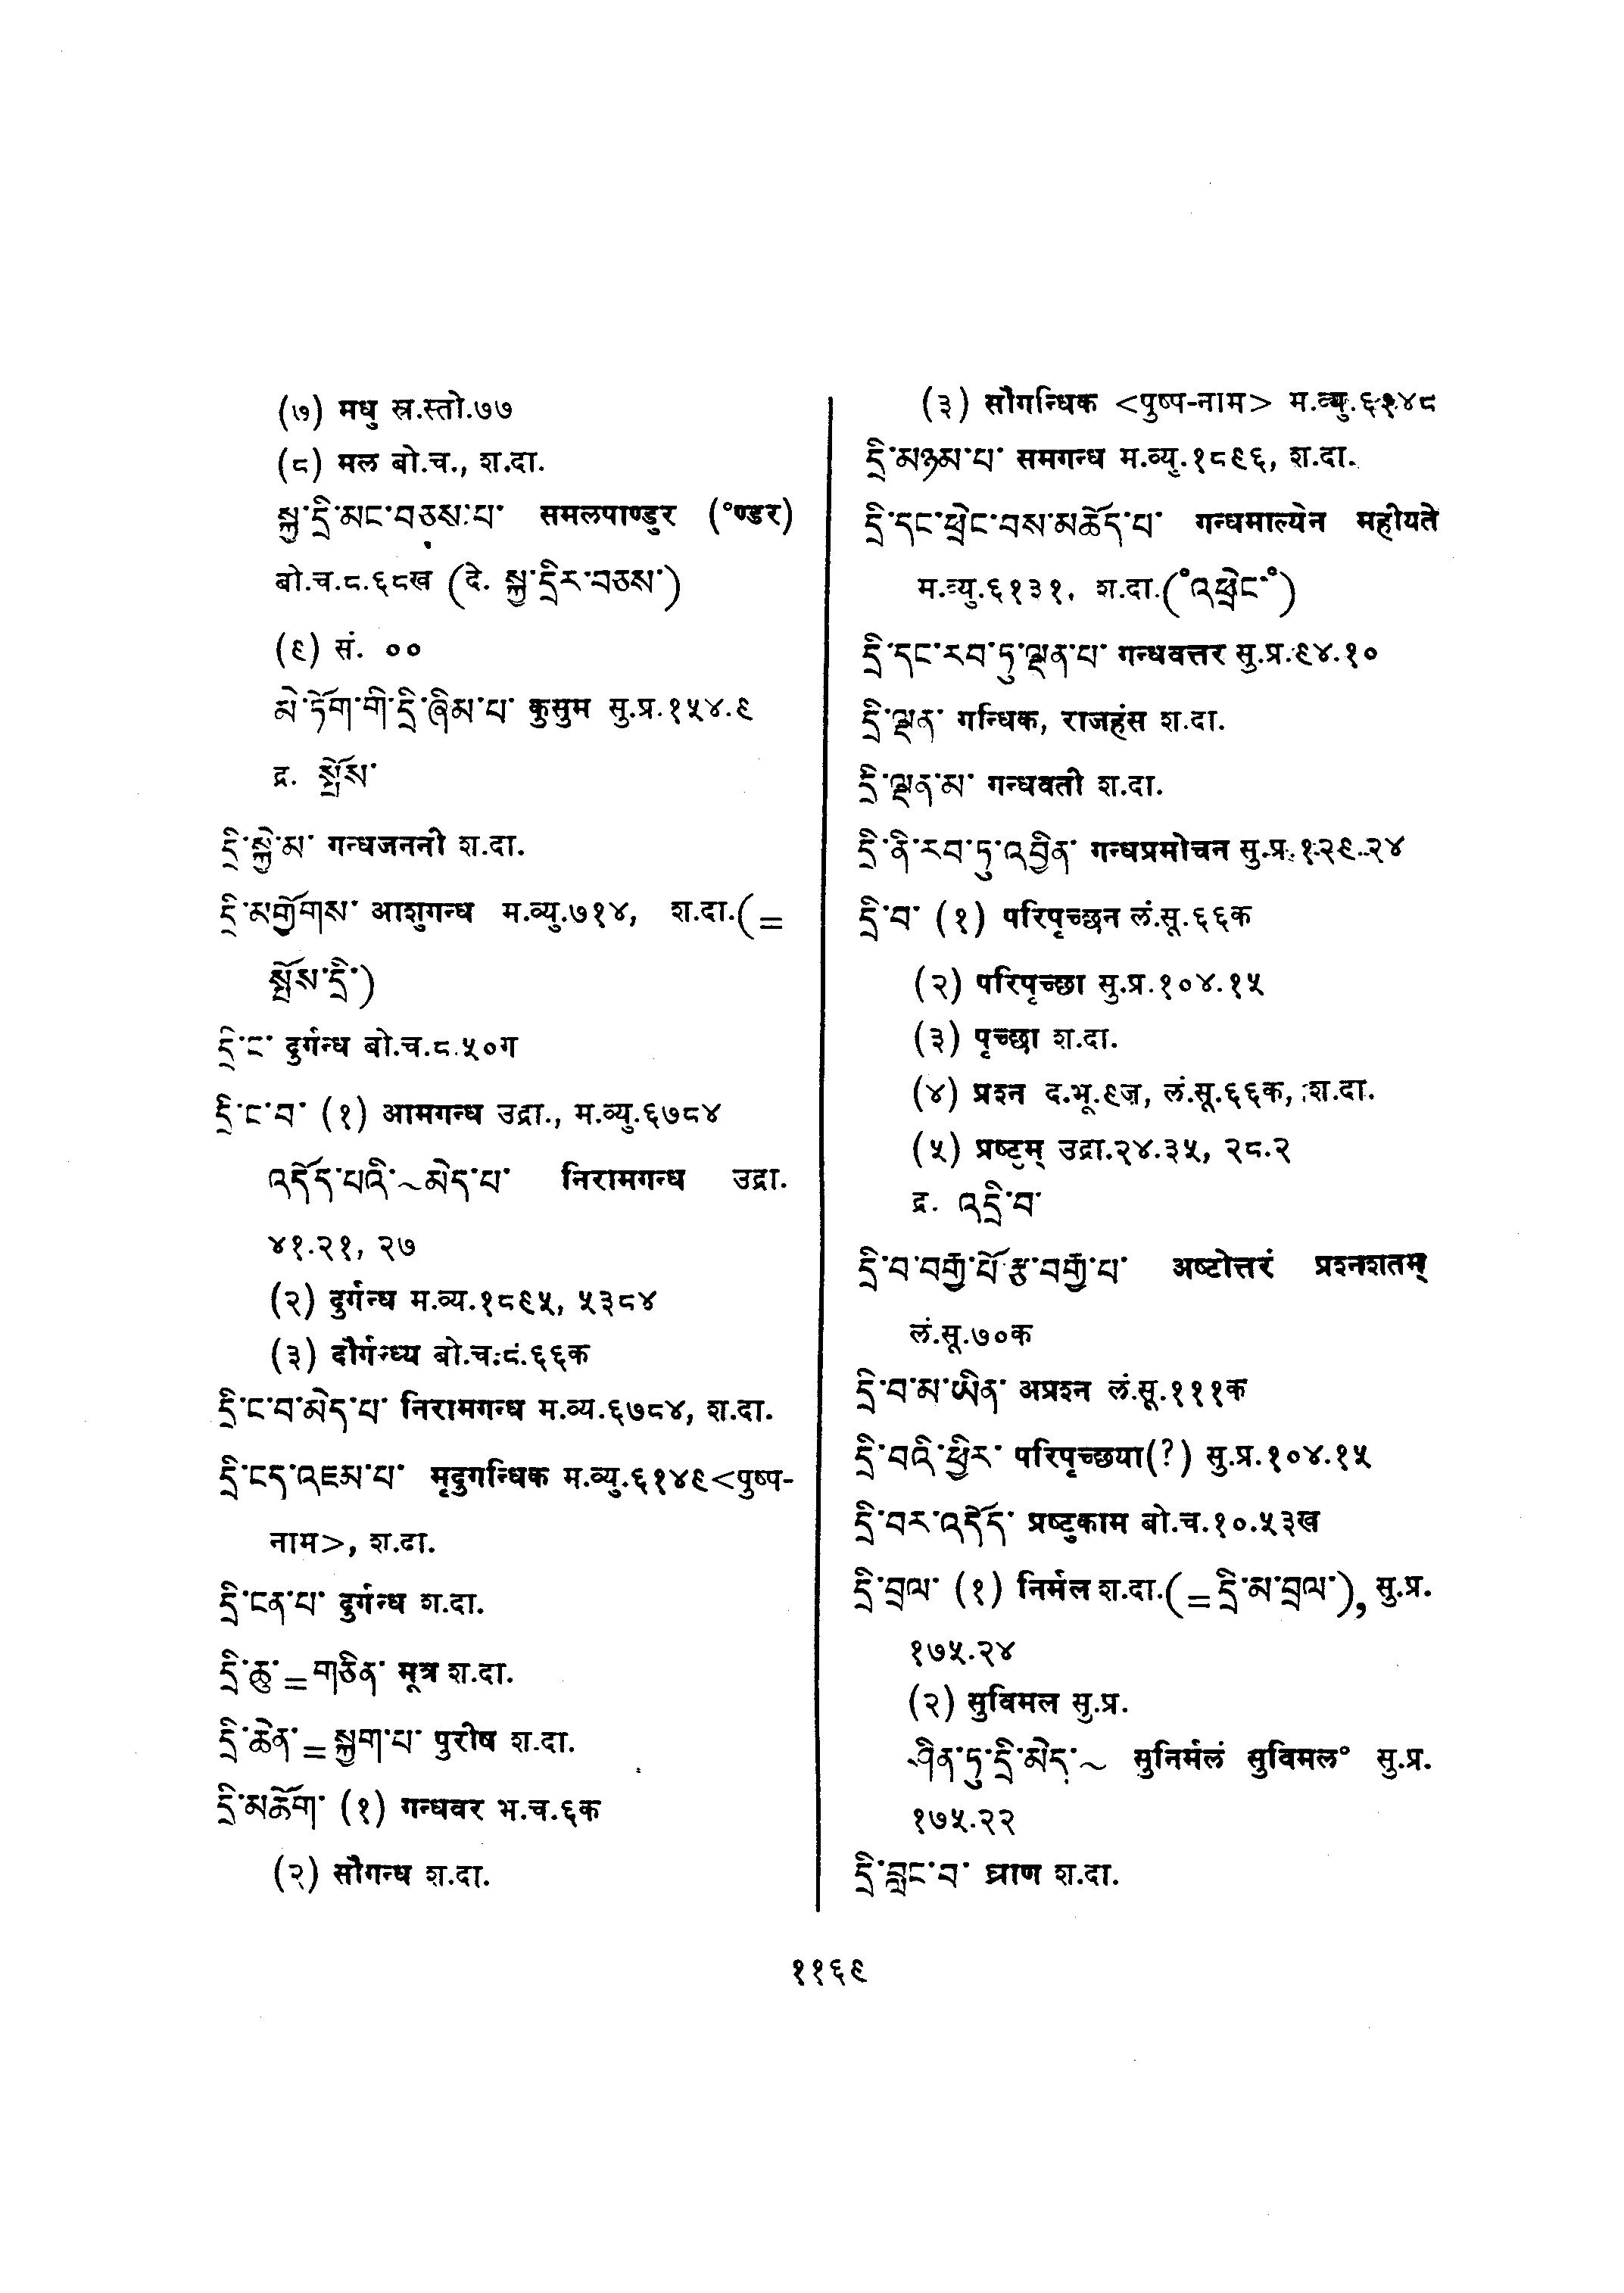 (७) मधु स्र.स्तो.७७
(८) मल बो.च., श.दा.
སྐྱ་དྲི་མང་བཅས་པ་ समलपाण्डुर (°ण्डर)
बो.च.८.६८ख (दे. སྐྱ་དྲིར་བཅས་)
(९) सं. ००
མེ་ཏོག་གི་དྲི་ཞིམ་པ་ कुसुम सु.प्र.१५४.९
द्र. སྤོས་
དྲི་སྐྱེ་མ་ गन्धजननी श.दा.
དྲི་མགྱོགས་ आशुगन्ध म.व्यु.७१४, श.दा.(=
སྤོས་དྲི་)
དྲི་ང་ दुर्गन्ध बो.च.८.५०ग
དྲི་ང་བ་ (१) आमगन्ध उद्रा., म.व्यु.६७८४
འདོད་པའི་~མེད་པ་ निरामगन्ध उद्रा.
४१.२१, २७
(२) दुर्गन्ध म.व्य.१८९५, ५३८४
(३) दौर्गन्ध्य बो.च.८.६६क
དྲི་ང་བ་མེད་པ་ निरामगन्ध म.व्य.६७८४, श.दा.
དྲི་ངད་འཇམ་པ་ मृदुगन्धिक म.व्यु.६१४९<पुष्प-
नाम>, श.दा.
དྲི་ངན་པ་ दुर्गन्ध श.दा.
དྲི་ཆུ་=གཅིན་ मूत्र श.दा.
དྲི་ཆེན་=སྐྱག་པ་ पुरीष श.दा.
དྲི་མཆོག་ (१) गन्धवर भ.च.६क
(२) सौगन्ध श.दा.
(३) सौगन्धिक <पुष्प-नाम> म.व्यु.६१४८
དྲི་མཉམ་པ་ समगन्ध म.व्यु.१८९६, श.दा.
དྲི་དང་ཕྲེང་བས་མཆོད་པ་ गन्धमाल्येन महीयते
म.व्यु.६१३१, श.दा.(°འཕྲེང་°)
དྲི་དང་རབ་ཏུ་ལྡན་པ་ गन्धवत्तर सु.प्र.९४.१०
དྲི་ལྡན་ गन्धिक, राजहंस श.दा.
དྲི་ལྡན་མ་ गन्धवती श.दा.
དྲི་ནི་རབ་ཏུ་འབྱིན་ गन्धप्रमोचन सु.प्र.१२९.२४
དྲི་བ་ (१) परिपृच्छन लं.सू.६६क
(२) परिपृच्छा सु.प्र.१०४.१५
(३) पृच्छा श.दा.
(४) प्रश्न द.भू.९ज, लं.सू.६६क, श.दा.
(५) प्रष्टुम् उद्रा.२४.३५, २८.२
द्र. འདྲི་བ་
དྲི་བ་བརྒྱ་པོ་རྩ་བརྒྱ་པ་ अष्टोत्तरं प्रश्नशतम्
लं.सू.७०क
དྲི་བ་མ་ཡིན་ अप्रश्न लं.सू.१११क
དྲི་བའི་ཕྱིར་ परिपृच्छया(?) सु.प्र.१०४.१५
དྲི་བར་འདོད་ प्रष्टुकाम बो.च.१०.५३ख
དྲི་བྲལ་ (१) निर्मल श.दा.(=དྲི་མ་བྲལ་), सु.प्र.
१७५.२४
(२) सुविमल सु.प्र.
ཤིན་ཏུ་དྲི་མེད་~ सुनिर्मलं सुविमल° सु.प्र.
१७५.२२
དྲི་བླང་བ་ घ्राण श.दा.
११६९